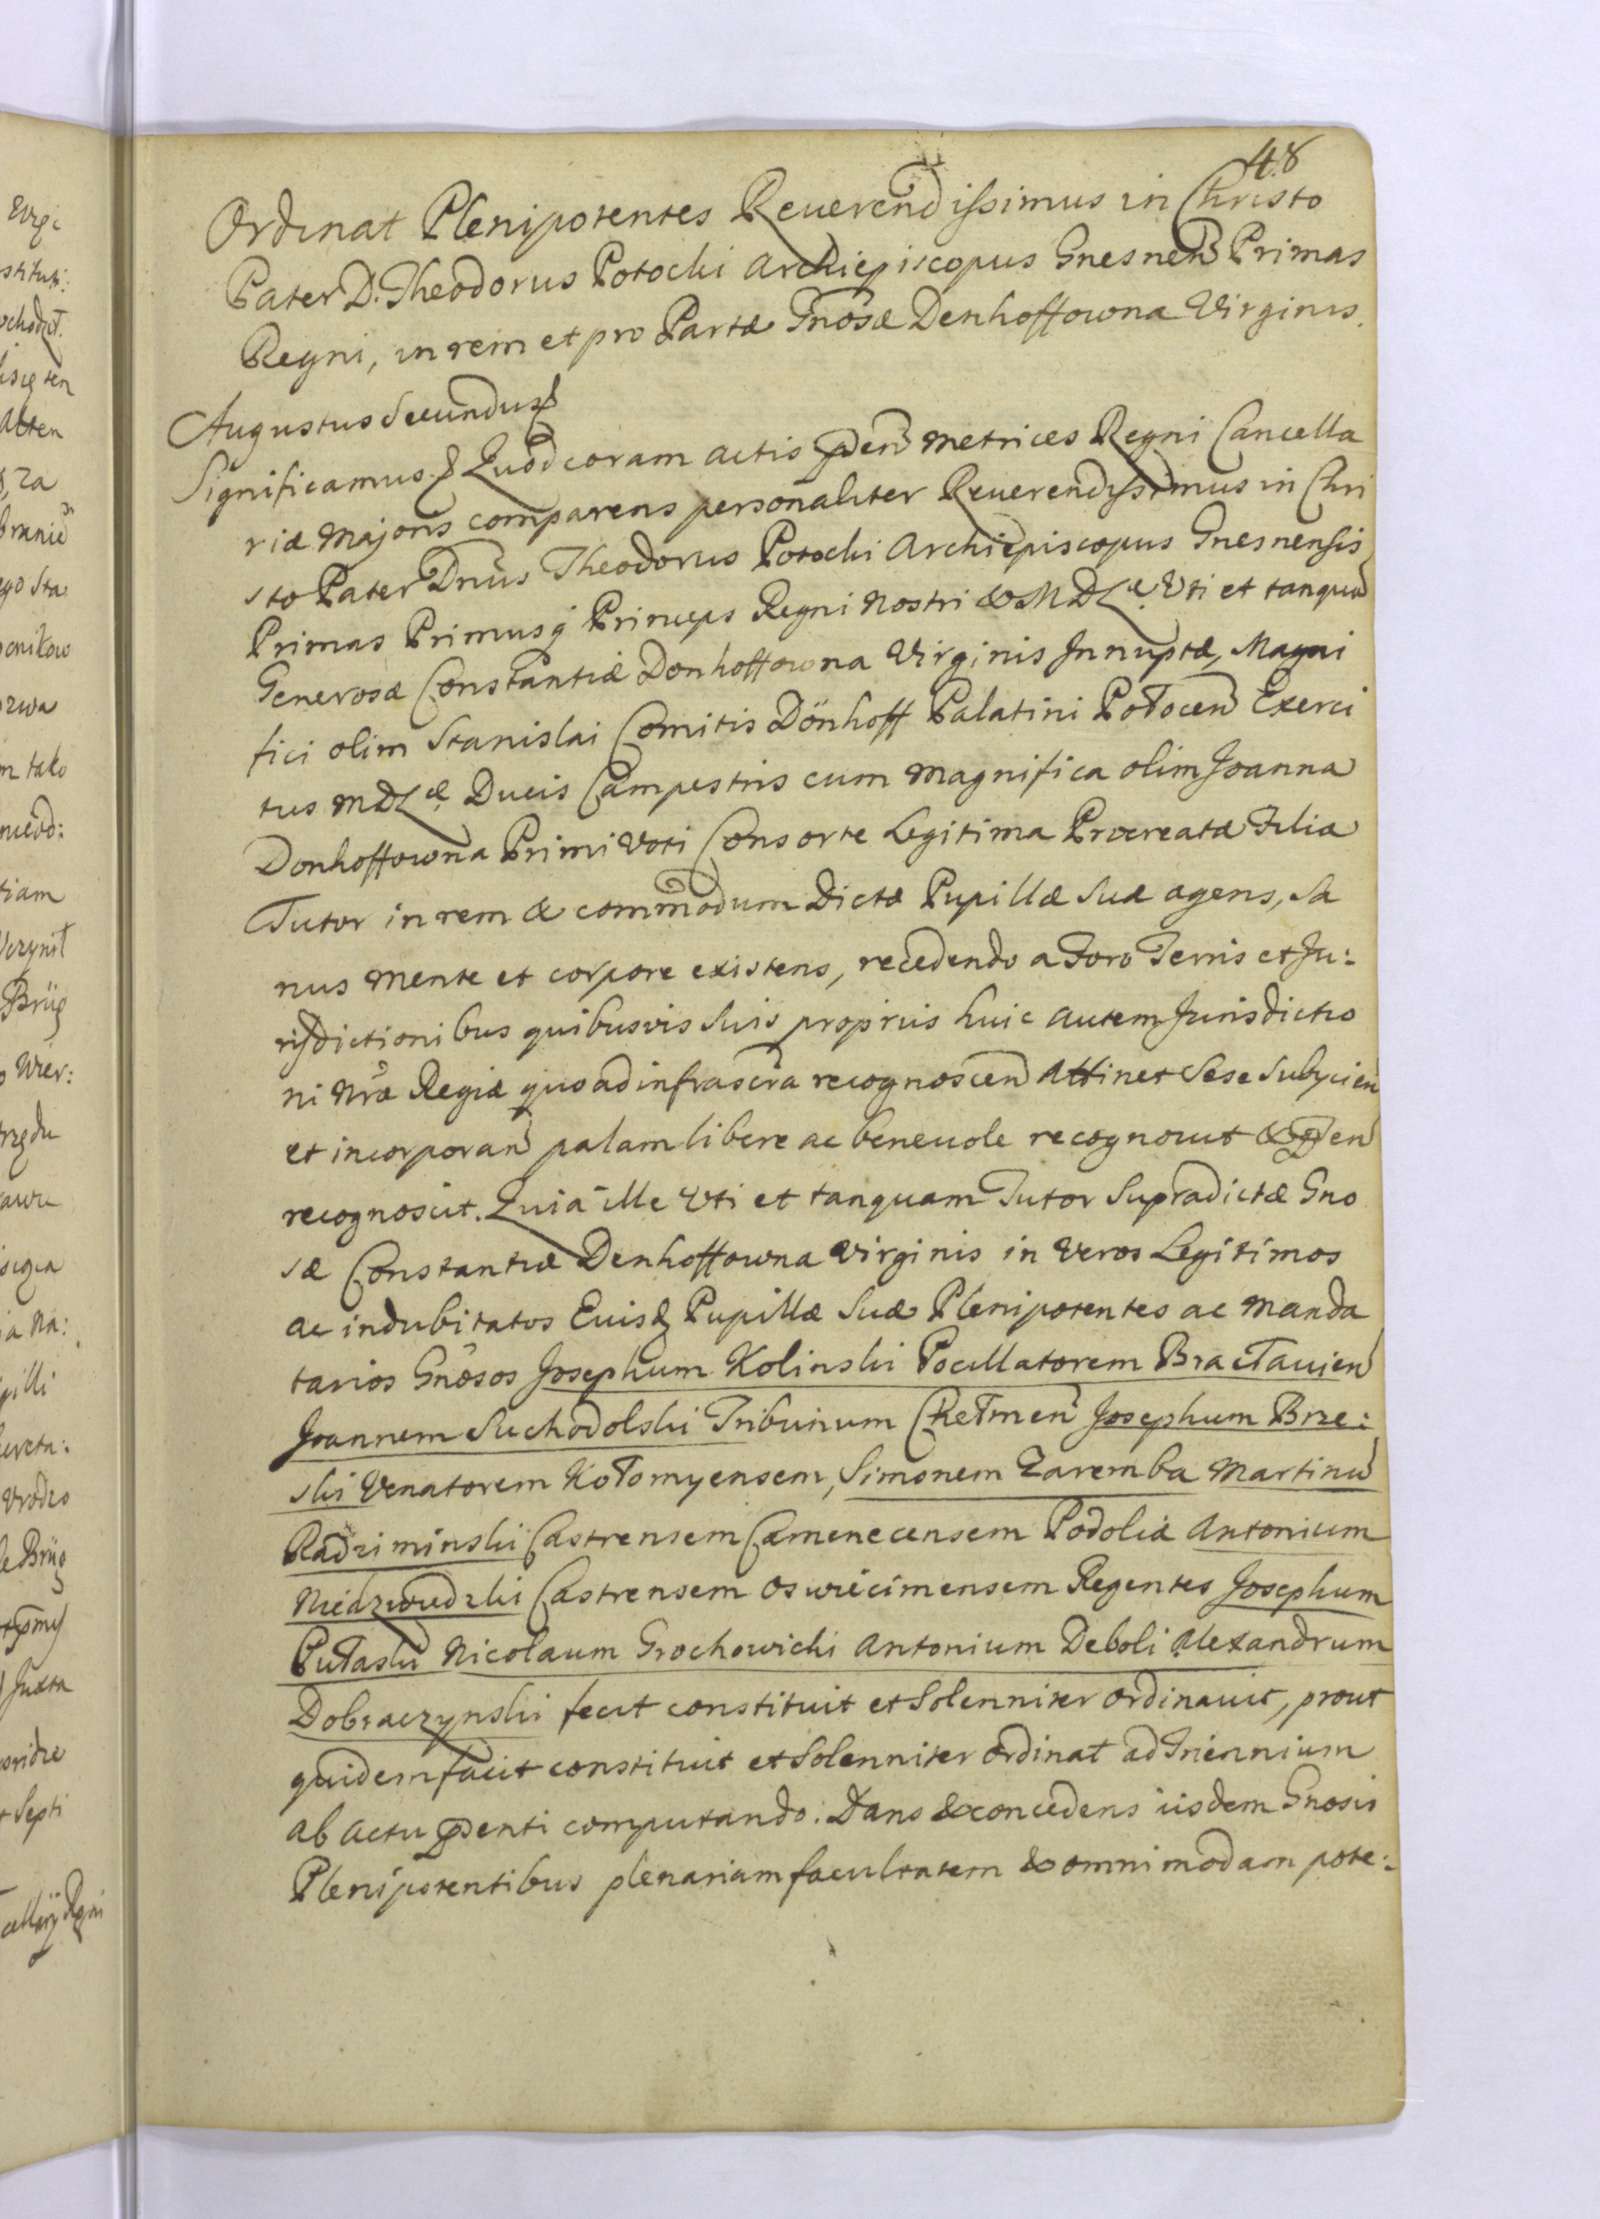 48
Ordinat Plenipotentes Reverendissimus in Christo
Pater D. Theodorus Potocki Archiepiscopus Gnesnen Primas
Regni, in rem et pro Parte Gnosæ Denhoffowna Virginis.
Augustus Secundus
Significamus Quod coram actis pñen Metrices Regni Cancella
riæ Majoris comparens personaliter Reverendissimus in Chri
sto Pater Dnus Theodorus Potocki Archiepiscopus Gnesnensis
Primas Primusq Princeps Regni Nostri & M D L æ. Uti et tanquã
Generosæ Constantiæ Donhoffowna Virginis Innuptæ, Magni
fici olim Stanislai Comitis Dönhoff Palatini Połocen Exerci
tus M D L æ Ducis Campestris cum Magnifica olim Joanna
Donhoffowna Primi Voti Consorte Legitima Procreatæ Filiæ
Tutor in rem & commodum Dictæ Pupillæ Suæ agens, Sa
nus mente et corpore existens, recedendo a Foro Terris et Ju:
risdictionibus quibusvis Suis proprijs huic autem Jurisdictio
ni Nræ Regiæ quo ad infrascra recognoscen Attinet Sese Subijcien
et incorporan palam libere ac beneuole recognovit & pñen
recognoscit. Quia ille Uti et tanquam Tutor Supradictæ Gno
sæ Constantiæ Denhoffowna Virginis in Veros Legitimos
ac indubitatos Euisd Pupillæ Suæ Plenipotentes ac Manda
tarios Gnosos Josephum Kolinski Pocillatorem Bracłavien
Joannem Suchodolski Tribunum Chełmen Josephum Brze:
ski Venatorem Kołomyensem, Simonem Zaremba Martinũ
Radziminski Castrensem Camenecensem Podoliæ Antonium
Niedzwiedzki Castrensem Oswiecimensem Regentes Josephum
Pułaski Nicolaum Grochowicki Antonium Deboli Alexandrum
Dobraczynski fecit constituit et Solenniter ordinavit, prout
quidem facit constituit et Solenniter ordinat ad Triennium
ab Actu pñenti computando. Dans & concedens iisdem Gnosis
Plenipotentibus plenariam facultatem & omnimodam pote: